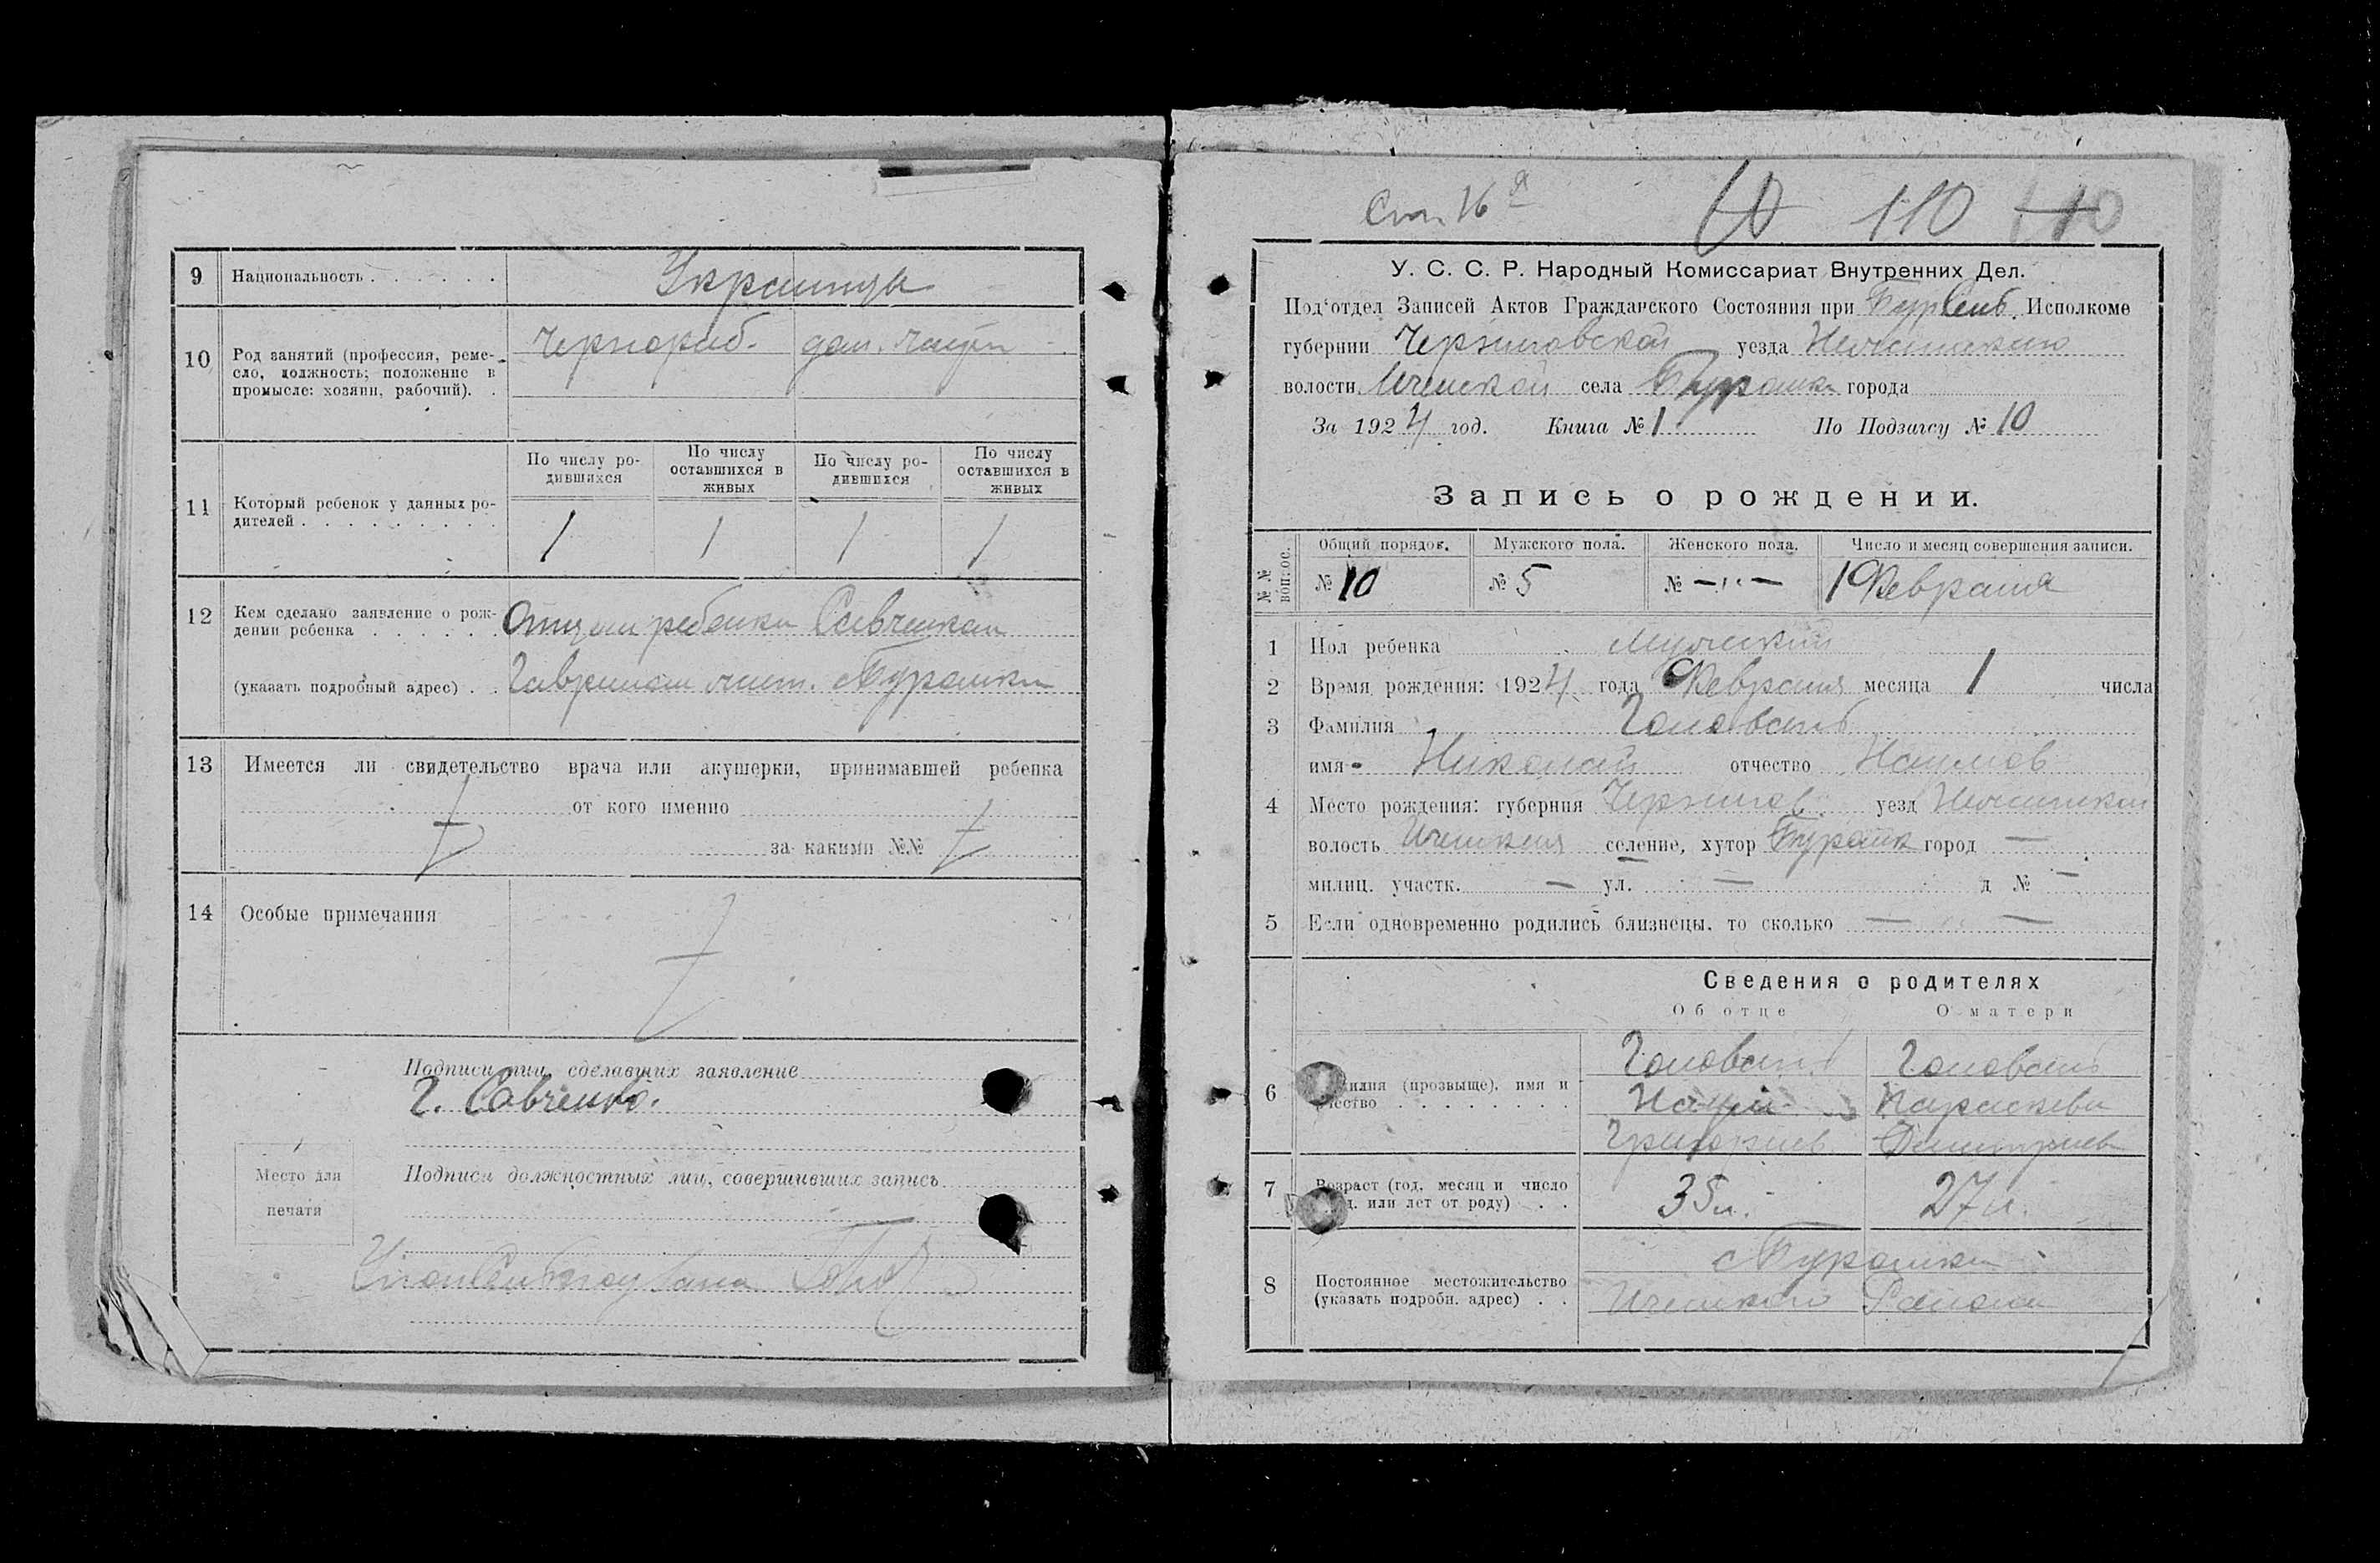 9 Национальность . . . . . . Украинцы
10 Род занятий (профессия, реме-
сло, должность; положение в
промысле: хозяин, рабочий). .
чернораб. дом.
11 Который ребенок у данных ро-
дителей . . . . . . . . .
По числу ро-
дившихся
По числу
оставшихся в
живых
По числу ро-
дившихся
По числу
оставшихся в
живых
1 1 1 1
12 Кем сделано заявление о рож-
дении ребенка . . . . . . Отцем ребенка Савченком
(указать подробный адрес) . . Гаврилом жит. с Бурамки
13 Имеется ли свидетельство врача или акушерки, принимавшей ребенка
от кого именно
за какими №№
14 Особые примечания
Подписи лиц, сделавших заявление
Г. Савченко.
Место для
печати
Подписи должностных лиц, совершивших запись
16 110
У. С. С. Р. Народный Комиссариат Внутренних Дел.
Под‘отдел Записей Актов Гражданского Состояния при Исполкоме
губернии Черниговской уезда Нежинского
волости Иченской села Бурамки города
За 1924 год. Книга № 1 По Подзагсу № 10
Запись о рождении.
№№ вопрос. Общий порядок. Мужского пола. Женского пола. Число и месяц совершения записи.
№ 10 № 5 № — " — 1 Февраля
1 Пол ребенка Мужский
2 Время рождения: 1924 года Февраля месяца 1 числа
3 Фамилия Головань
имя - Николай отчество Наумов
4 Место рождения: губерния Чернигов уезд Нежинский
волость Иченская селение, хутор Бурамк город —
милиц. участк. — ул. — д № —
5 Если одновременно родились близнецы, то сколько — —
Сведения о родителях
Об отце О матери
6 милия (прозвище), имя и
чество . . . . . . . .
Головань Головань
Наум Параскева
Григориев Дмитриев
7 Возраст (год, месяц и число
д. или лет от роду) . .
35 л. 27 л.
8 Постоянное местожительство
(указать подробн. адрес) . .
с Бурамки
Иченского Района